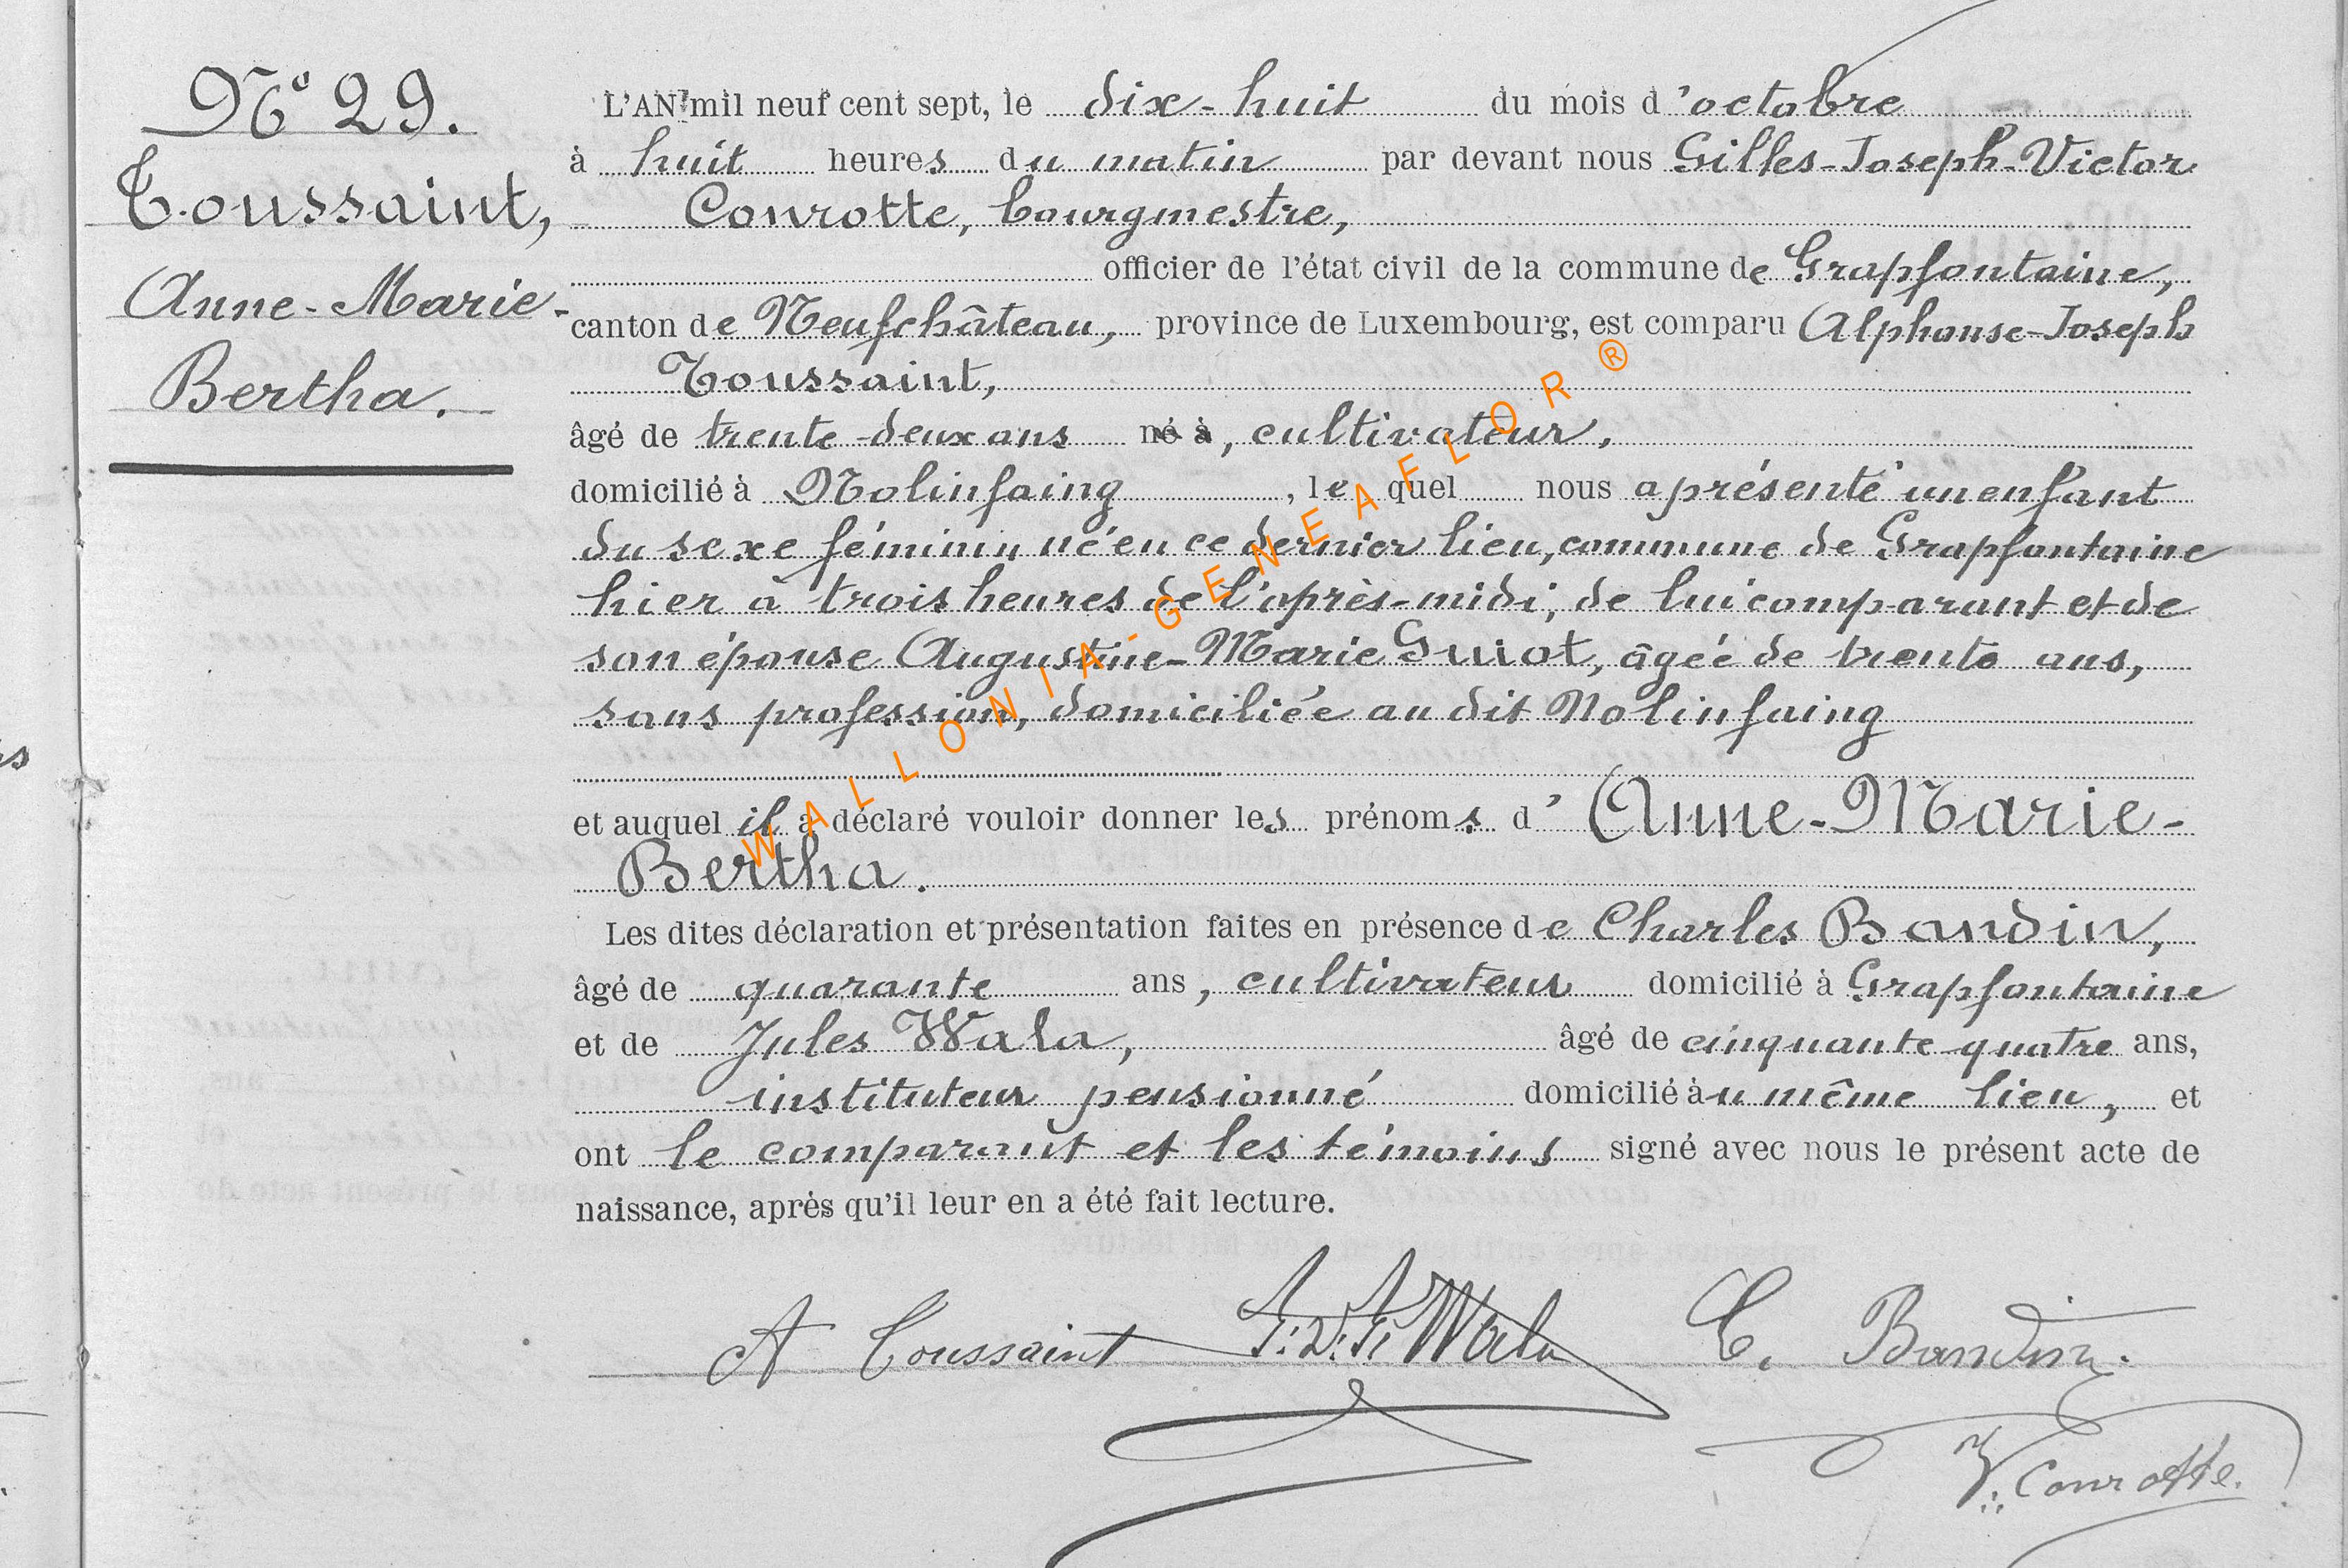 N° 29.
Toussaint,
Anne-Marie-
Bertha.
L'AN mil neuf cent sept, le dix-huit du mois d'octobre
à huit heures du matin par devant nous Gilles-Joseph-Victor
Conrotte, bourgmestre,
officier de l'état civil de la commune de Grapfontaine,
canton de Neufchâteau, province de Luxembourg, est comparu Alphonse-Joseph
Toussaint,
âgé de trente-deux ans né à, cultivateur,
domicilié à Nolinfaing, lequel nous a présenté un enfant
du sexe féminin né en ce dernier lieu, commune de Grapfontaine
hier à trois heures de l'après-midi, de lui comparant et de
son épouse Augustine-Marie Guiot, âgée de trente ans,
sans profession, domiciliée au dit Nolinfaing
et auquel il a déclaré vouloir donner les prénoms d'Anne-Marie-
Bertha.
Les dites déclaration et présentation faites en présence de Charles Baudin,
âgé de quarante ans, cultivateur domicilié à Grapfontaine
et de Jules Wala, âgé de cinquante-quatre ans,
instituteur pensionné domicilié au même lieu, et
ont le comparant et les témoins signé avec nous le présent acte de
naissance, après qu'il leur en a été fait lecture.
A Toussaint Wala C. Baudin.
V. Conrotte.
WALLONIA-GENEAFLOR ®